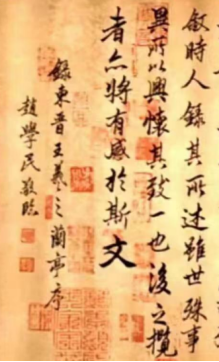 敘時人錄其所述雖世殊事
異所以興懷其致一也後之攬
者亦將有感於斯文
錄東晉王羲之蘭亭序
趙學民敬臨